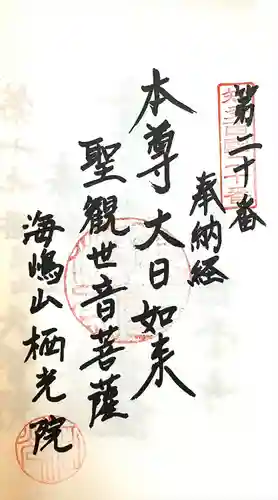 第二十番
奉納経
本尊 大日如来
聖觀世音菩薩
海嶋山栖光院